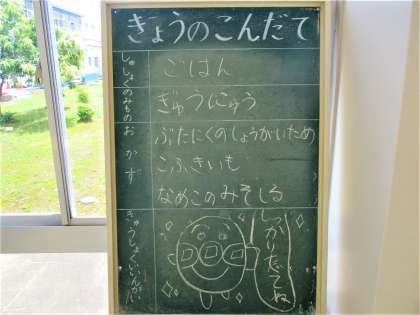 きょうのこんだて
しゅしょく
ごはん
のみもの
ぎゅうにゅう
おかず
ぶたにくのしょうがいため
こふきいも
なめこのみそしる
きゅうしょくいいんかい
しっかりたべてね